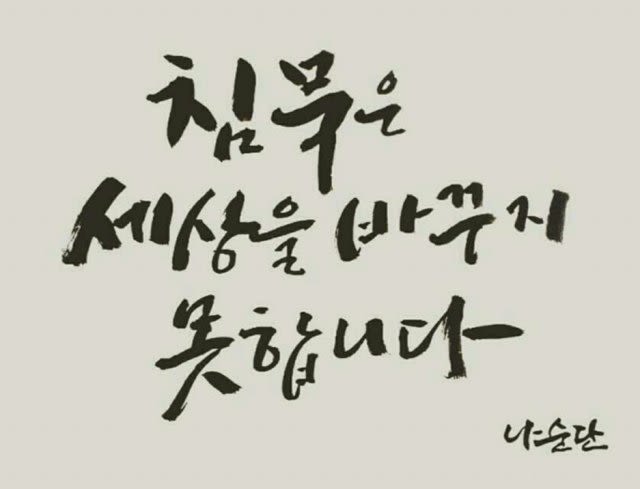 침묵은
세상을 바꾸지
못합니다
나순단